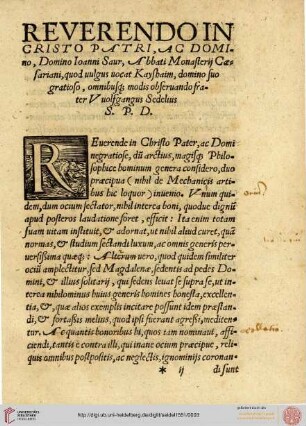 REVERENDO IN
CRISTO PATRI, AC DOMI-
no, Domino Ioanni Saur, Abbati Monasterij Cæ-
sariani, quod uulgus uocat Kayßhaim, domino suo
gratioso, omnibusq; modis obseruando fra-
ter Vuolfgangus Sedelius
S. P. D.
REuerende in Christo Pater, ac Domi
ne gratiose, dũ arctius, magisq; Philo-
sophice hominum genera considero, duo
præcipua (nihil de Mechanicis arti
bus hic loquor) inuenio. Vnum qui-
dem, dum ocium sectator, nihil interea boni, quodue dignũ
apud posteros laudatione foret, efficit: Ita enim totam
suam uitam instituit, & adornat, ut nihil aliud curet, quã
normas, & studium sectandi luxum, ac omnis generis per-
uersissima quæq;: Alterum uero, quod quidem similiter
ociũ amplectitur, sed Magdalenæ, sedentis ad pedes Do-
mini, & illius solitarij, qui sedens leuat se supra se, ut in-
terea nihilominus huius generis homines honesta, excellen-
tia, & quæ alios exemplis incitare possunt idem præstan-
di, & fortaßis melius, quod ipsi fuerant agreßi, mediten-
tur. At quantis honoribus hi, quos iam nominaui, affi-
ciendi, tantis è contra illi, qui inane ocium præcipue, reli-
quis omnibus postpositis, ac neglectis, ignominijs coronan-
* ij di sunt
http://digi.ub.uni-heidelberg.de/diglit/sedel1551/0003